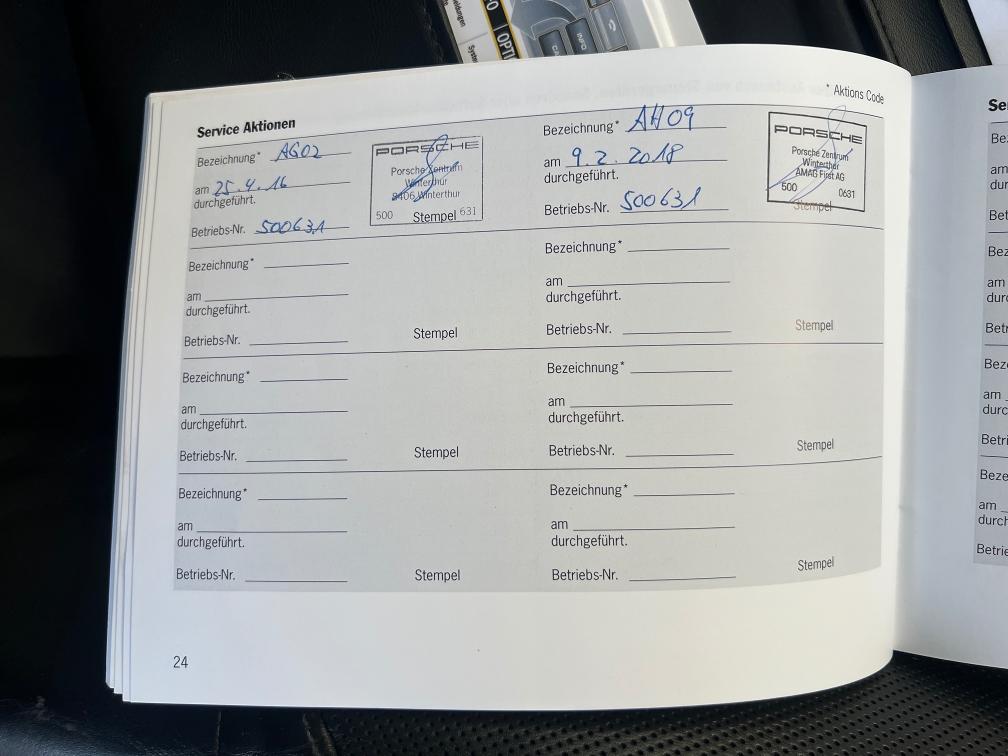 eldungen
Syste
FO
OPTI
CA
INFO
* Aktions Code
Service Aktionen
Bezeichnung* AG02
am 25.4.16
durchgeführt.
Betriebs-Nr. 500631
PORSCHE
Porsche Zentrum
Winterthur
8406 Winterthur
500 Stempel 631
Bezeichnung* AH09
am 9.2.2018
durchgeführt.
Betriebs-Nr. 500631
PORSCHE
Porsche Zentrum
Winterthur
AMAG First AG
500 0631
Stempel
Bezeichnung*
am
durchgeführt.
Betriebs-Nr. Stempel
Bezeichnung*
am
durchgeführt.
Betriebs-Nr. Stempel
Bezeichnung*
am
durchgeführt.
Betriebs-Nr. Stempel
Bezeichnung*
am
durchgeführt.
Betriebs-Nr. Stempel
Bezeichnung*
am
durchgeführt.
Betriebs-Nr. Stempel
Bezeichnung*
am
durchgeführt.
Betriebs-Nr. Stempel
24
Se
Be
am
dur
Bet
Bez
am
durc
Betr
Bez
am
durc
Betri
Beze
am
durch
Betrie